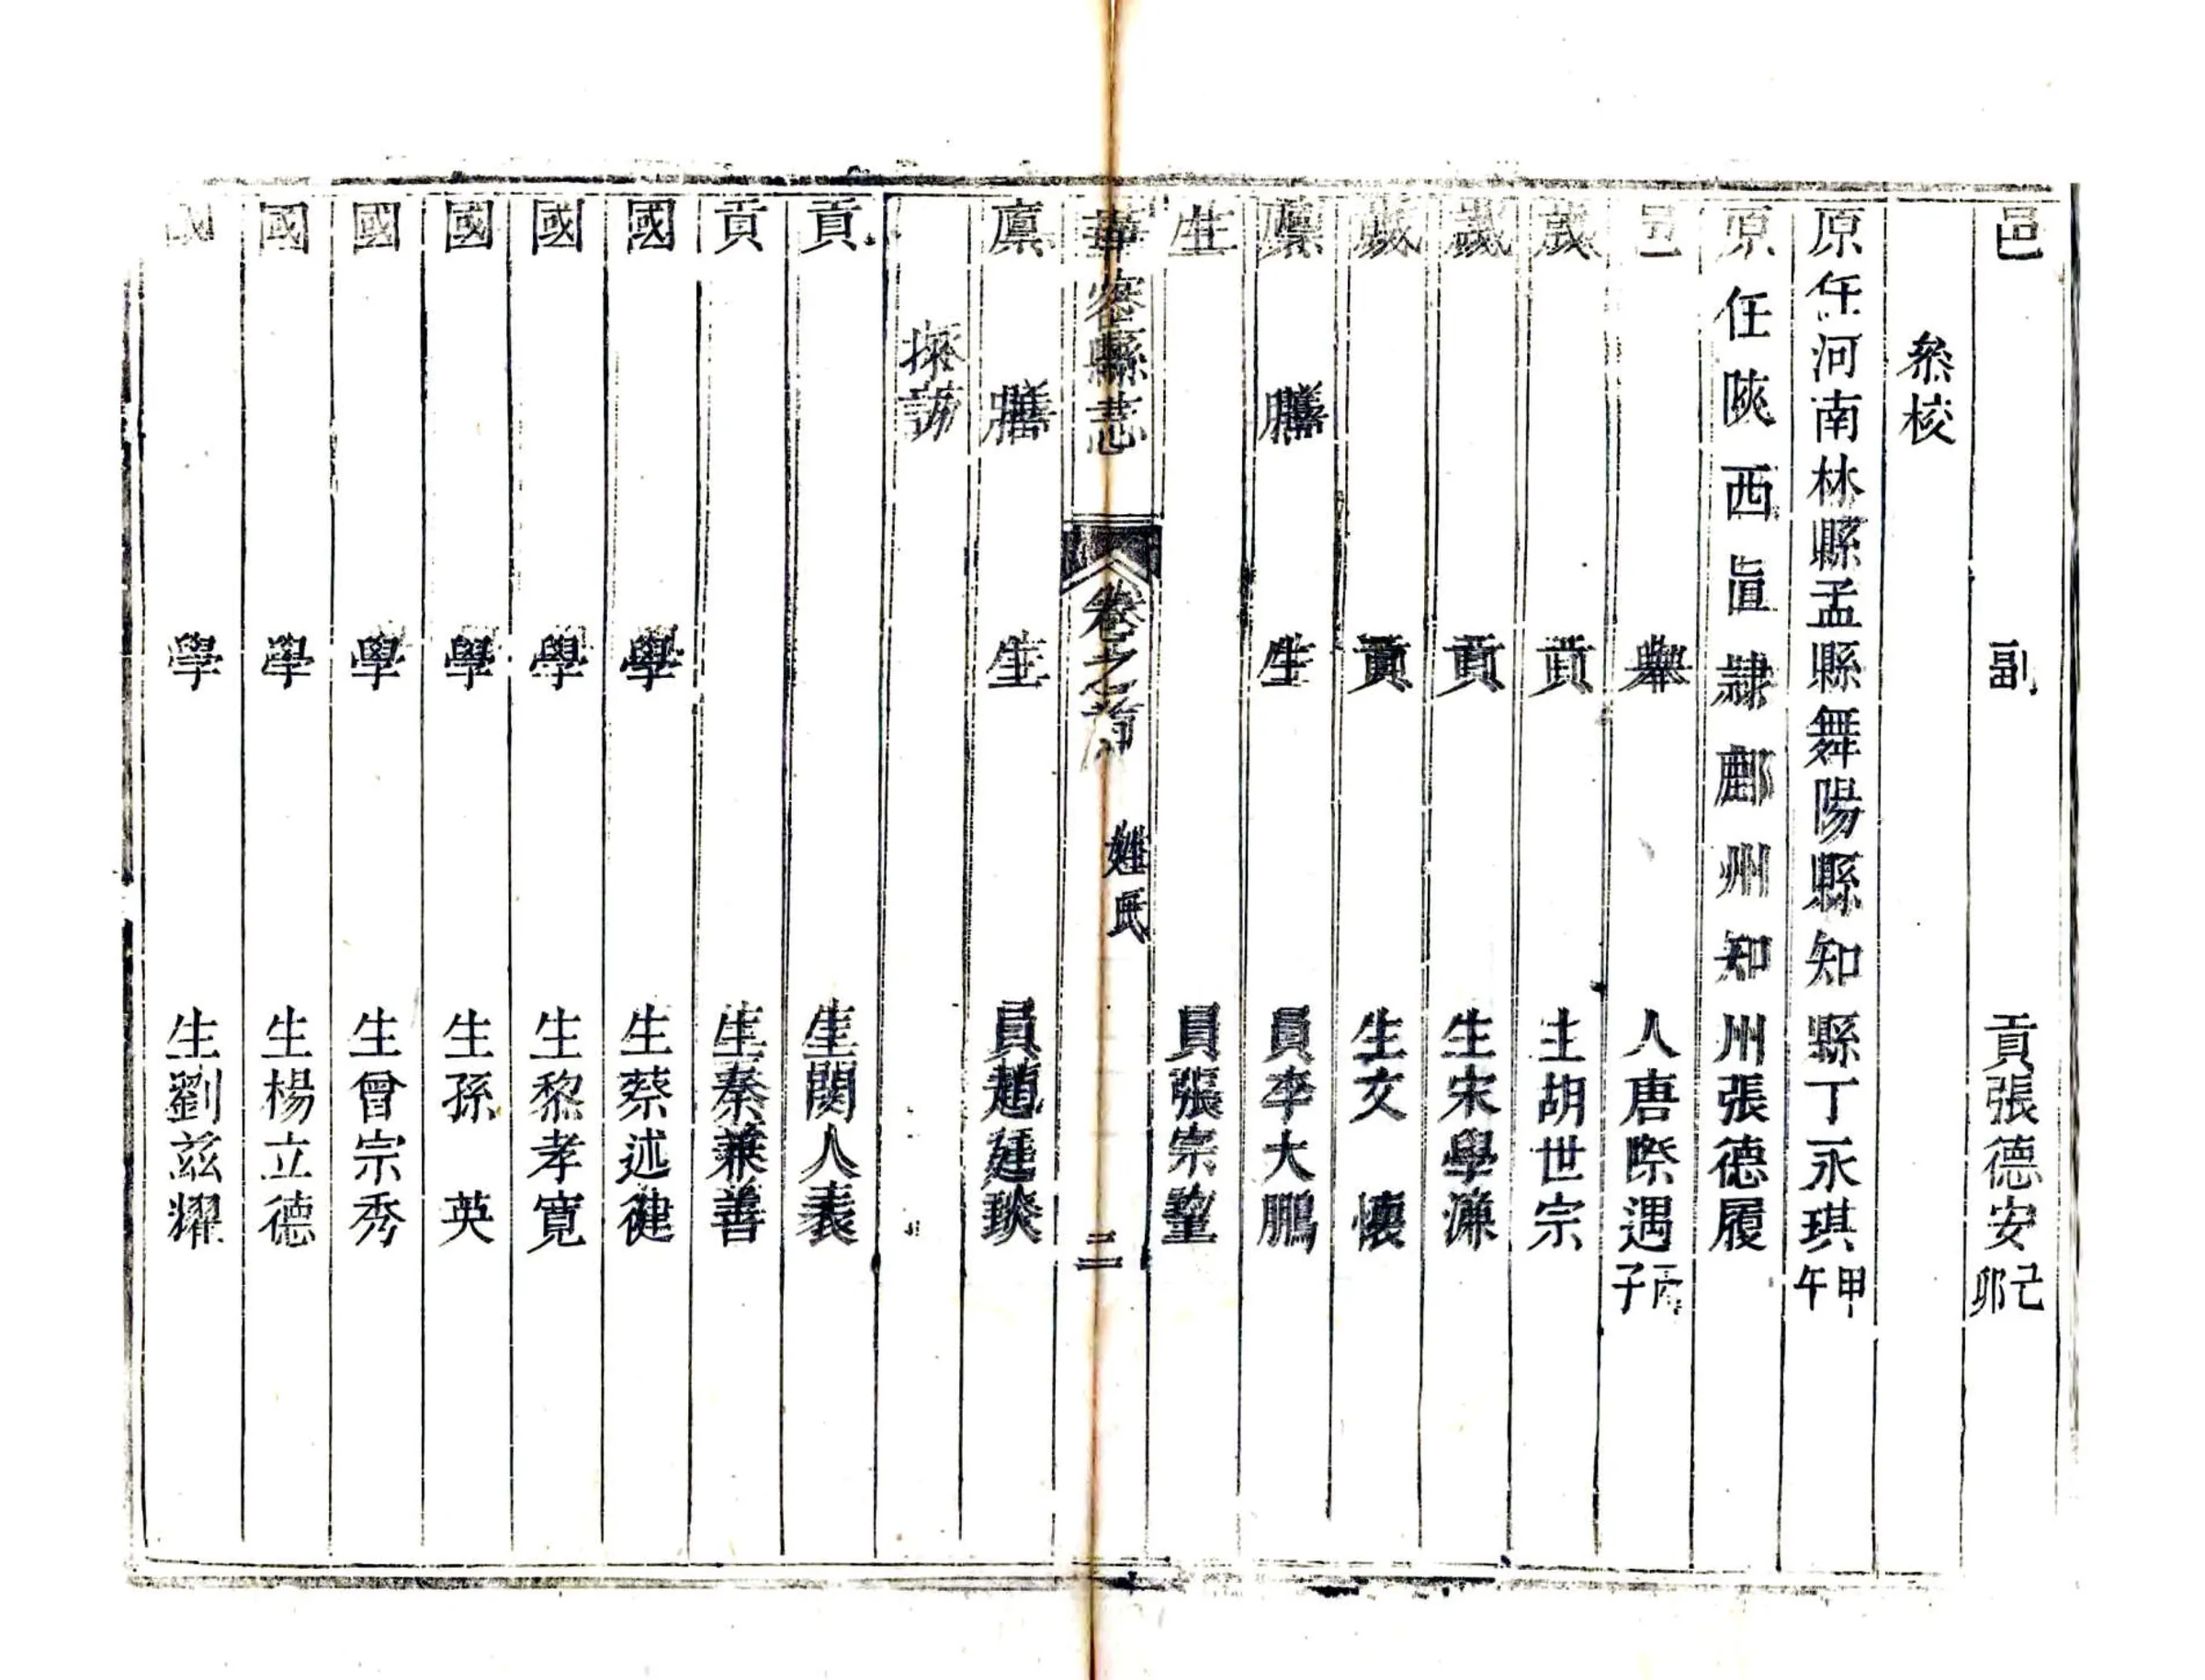 邑副貢張德安己卯
叅校
原任河南林縣孟縣舞陽縣知縣丁永琪甲午
原任陝西直隷鄜州知州張德履
邑舉人唐際遇丙子
歲貢士胡世宗
歲貢生宋學濂
歲貢生文懷
廩膳生員李大鵬
生員張宗
華容縣志 卷之首 姓氏 二
廩膳生員趙廷琰
採訪
貢生関人表
貢生秦兼善
國學生蔡述健
國學生黎孝寬
國學生孫英
國學生曾宗秀
國學生楊立德
國學生劉茲耀